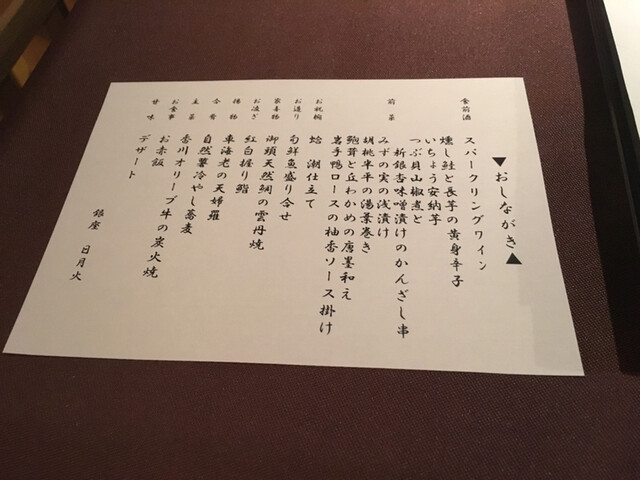 ▼おしながき▲
食前酒 スパークリングワイン
前菜 燻し鮭と長芋の黄身辛子
いちょう安納芋
つぶ貝山椒煮と
新銀杏味噌漬けのかんざし串
みずの実の浅漬け
胡桃半平の湯葉巻き
鮑茸と丘わかめの唐墨和え
岩手鴨ロースの柚香ソース掛け
お祝椀 蛤 潮仕立て
お造り 旬鮮魚盛り合せ
家喜物 御頭天然鯛の雲丹焼
お凌ぎ 紅白握り鮨
揚物 車海老の天婦羅
合肴 自然薯冷やし蕎麦
主菜 香川オリーブ牛の炭火焼
お食事 お赤飯
甘味 デザート
銀座 日月火